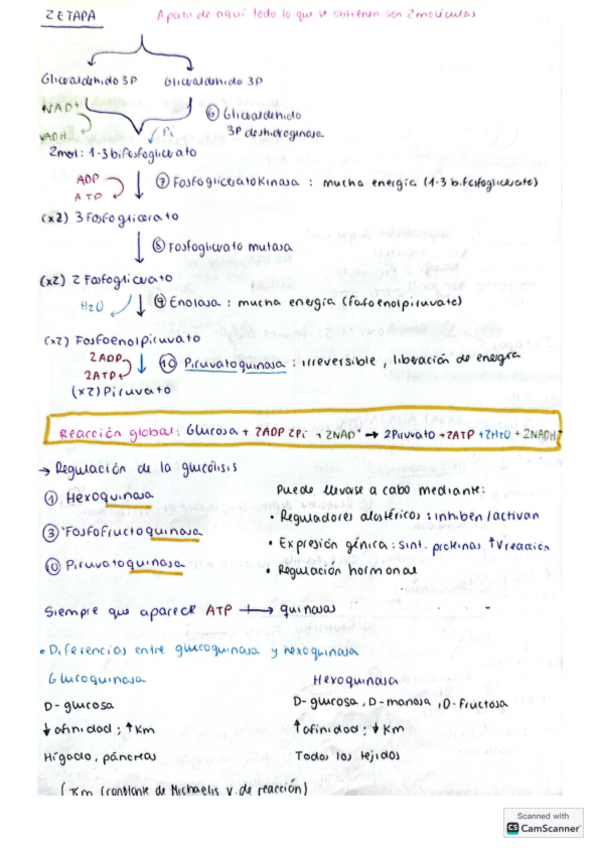 2 ETAPA   A partir de aquí todo lo que se obtienen son 2 moléculas
Gliceraldehido 3P   Gliceraldehido 3P
NAD+   ⑥ Gliceraldehido
NADH   Pi   3P deshidrogenasa
2mol: 1-3 bifosfoglicerato
ADP   ⑦ Fosfogliceratokinasa : mucha energía (1-3 bifosfoglicerato)
ATP
(x2) 3 Fosfoglicerato
⑧ Fosfoglicerato mutasa
(x2) 2 Fosfoglicerato
H2O   ⑨ Enolasa : mucha energía (fosfoenolpiruvato)
(x2) Fosfoenolpiruvato
2ADP   ⑩ Piruvatoquinasa : irreversible, liberación de energía
2ATP
(x2) Piruvato
Reacción global: Glucosa + 2ADP 2Pi + 2NAD+ → 2Piruvato + 2ATP + 2H2O + 2NADH
→ Regulación de la glucólisis
① Hexoquinasa   Puede llevarse a cabo mediante:
• Reguladores alostéricos : inhiben/activan
③ Fosfofructoquinasa
• Expresión génica : sint. proteínas ↑ V reacción
⑩ Piruvatoquinasa   • Regulación hormonal
Siempre que aparece ATP → quinasas
• Diferencias entre glucoquinasa y hexoquinasa
Glucoquinasa   Hexoquinasa
D-glucosa   D-glucosa, D-manosa, D-fructosa
↓ afinidad ; ↑ Km   ↑ afinidad ; ↓ Km
Hígado, páncreas   Todos los tejidos
(Km (constante de Michaelis v. de reacción)
Scanned with
CS CamScanner